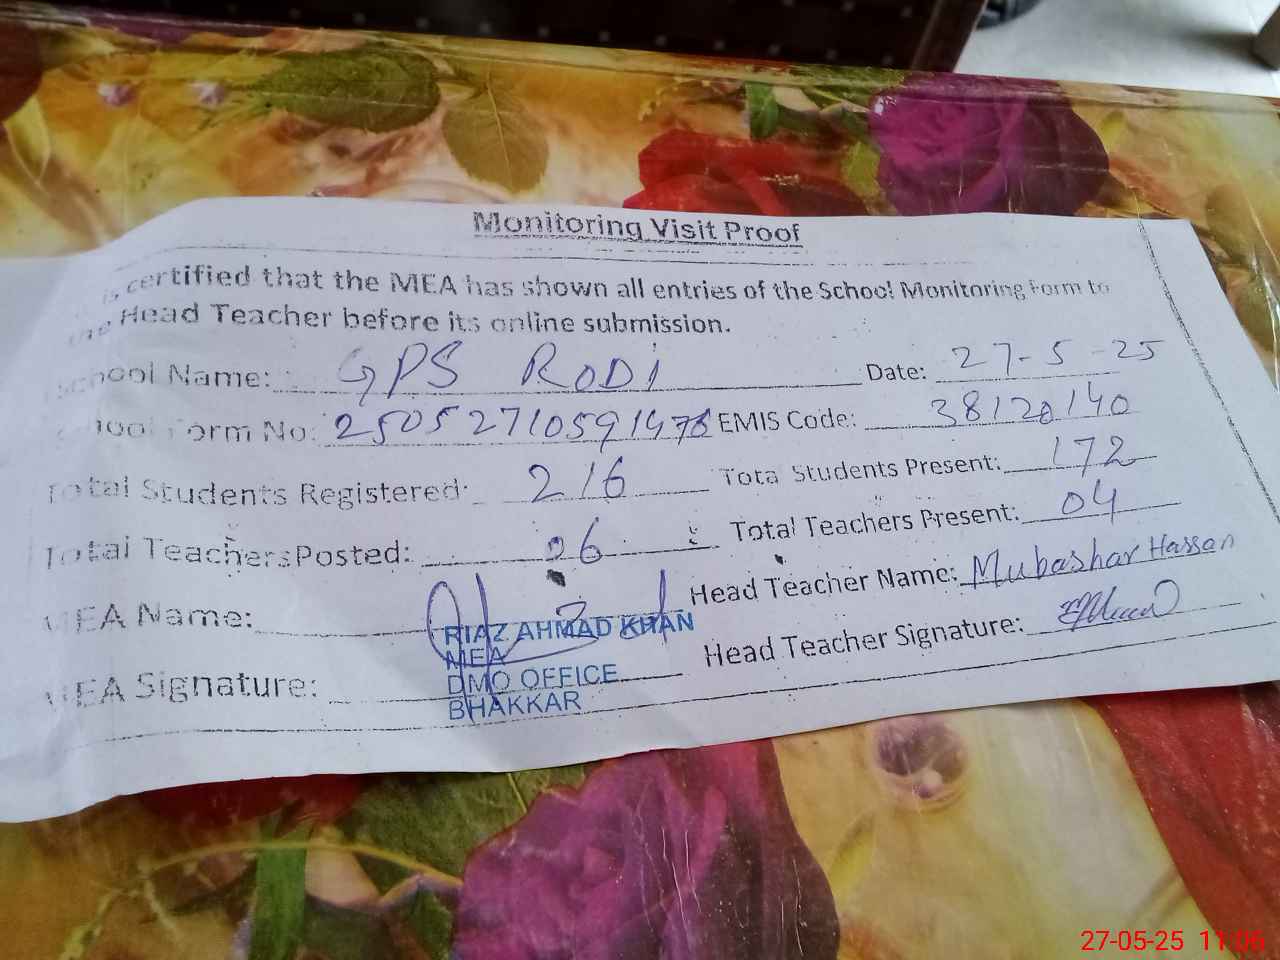 Monitoring Visit Proof
is certified that the MEA has shown all entries of the School Monitoring Form to
the Head Teacher before its online submission.
School Name: GPS RODI Date: 27-5-25
School Form No: 25052710591476 EMIS Code: 38120140
Total Students Registered: 216 Total Students Present: 172
Total Teachers Posted: 06 Total Teachers Present: 04
MEA Name: Head Teacher Name: Mubashar Hassan
RIAZ AHMAD KHAN
MEA
MEA Signature: Head Teacher Signature:
DMO OFFICE
BHAKKAR
27-05-25 11:06